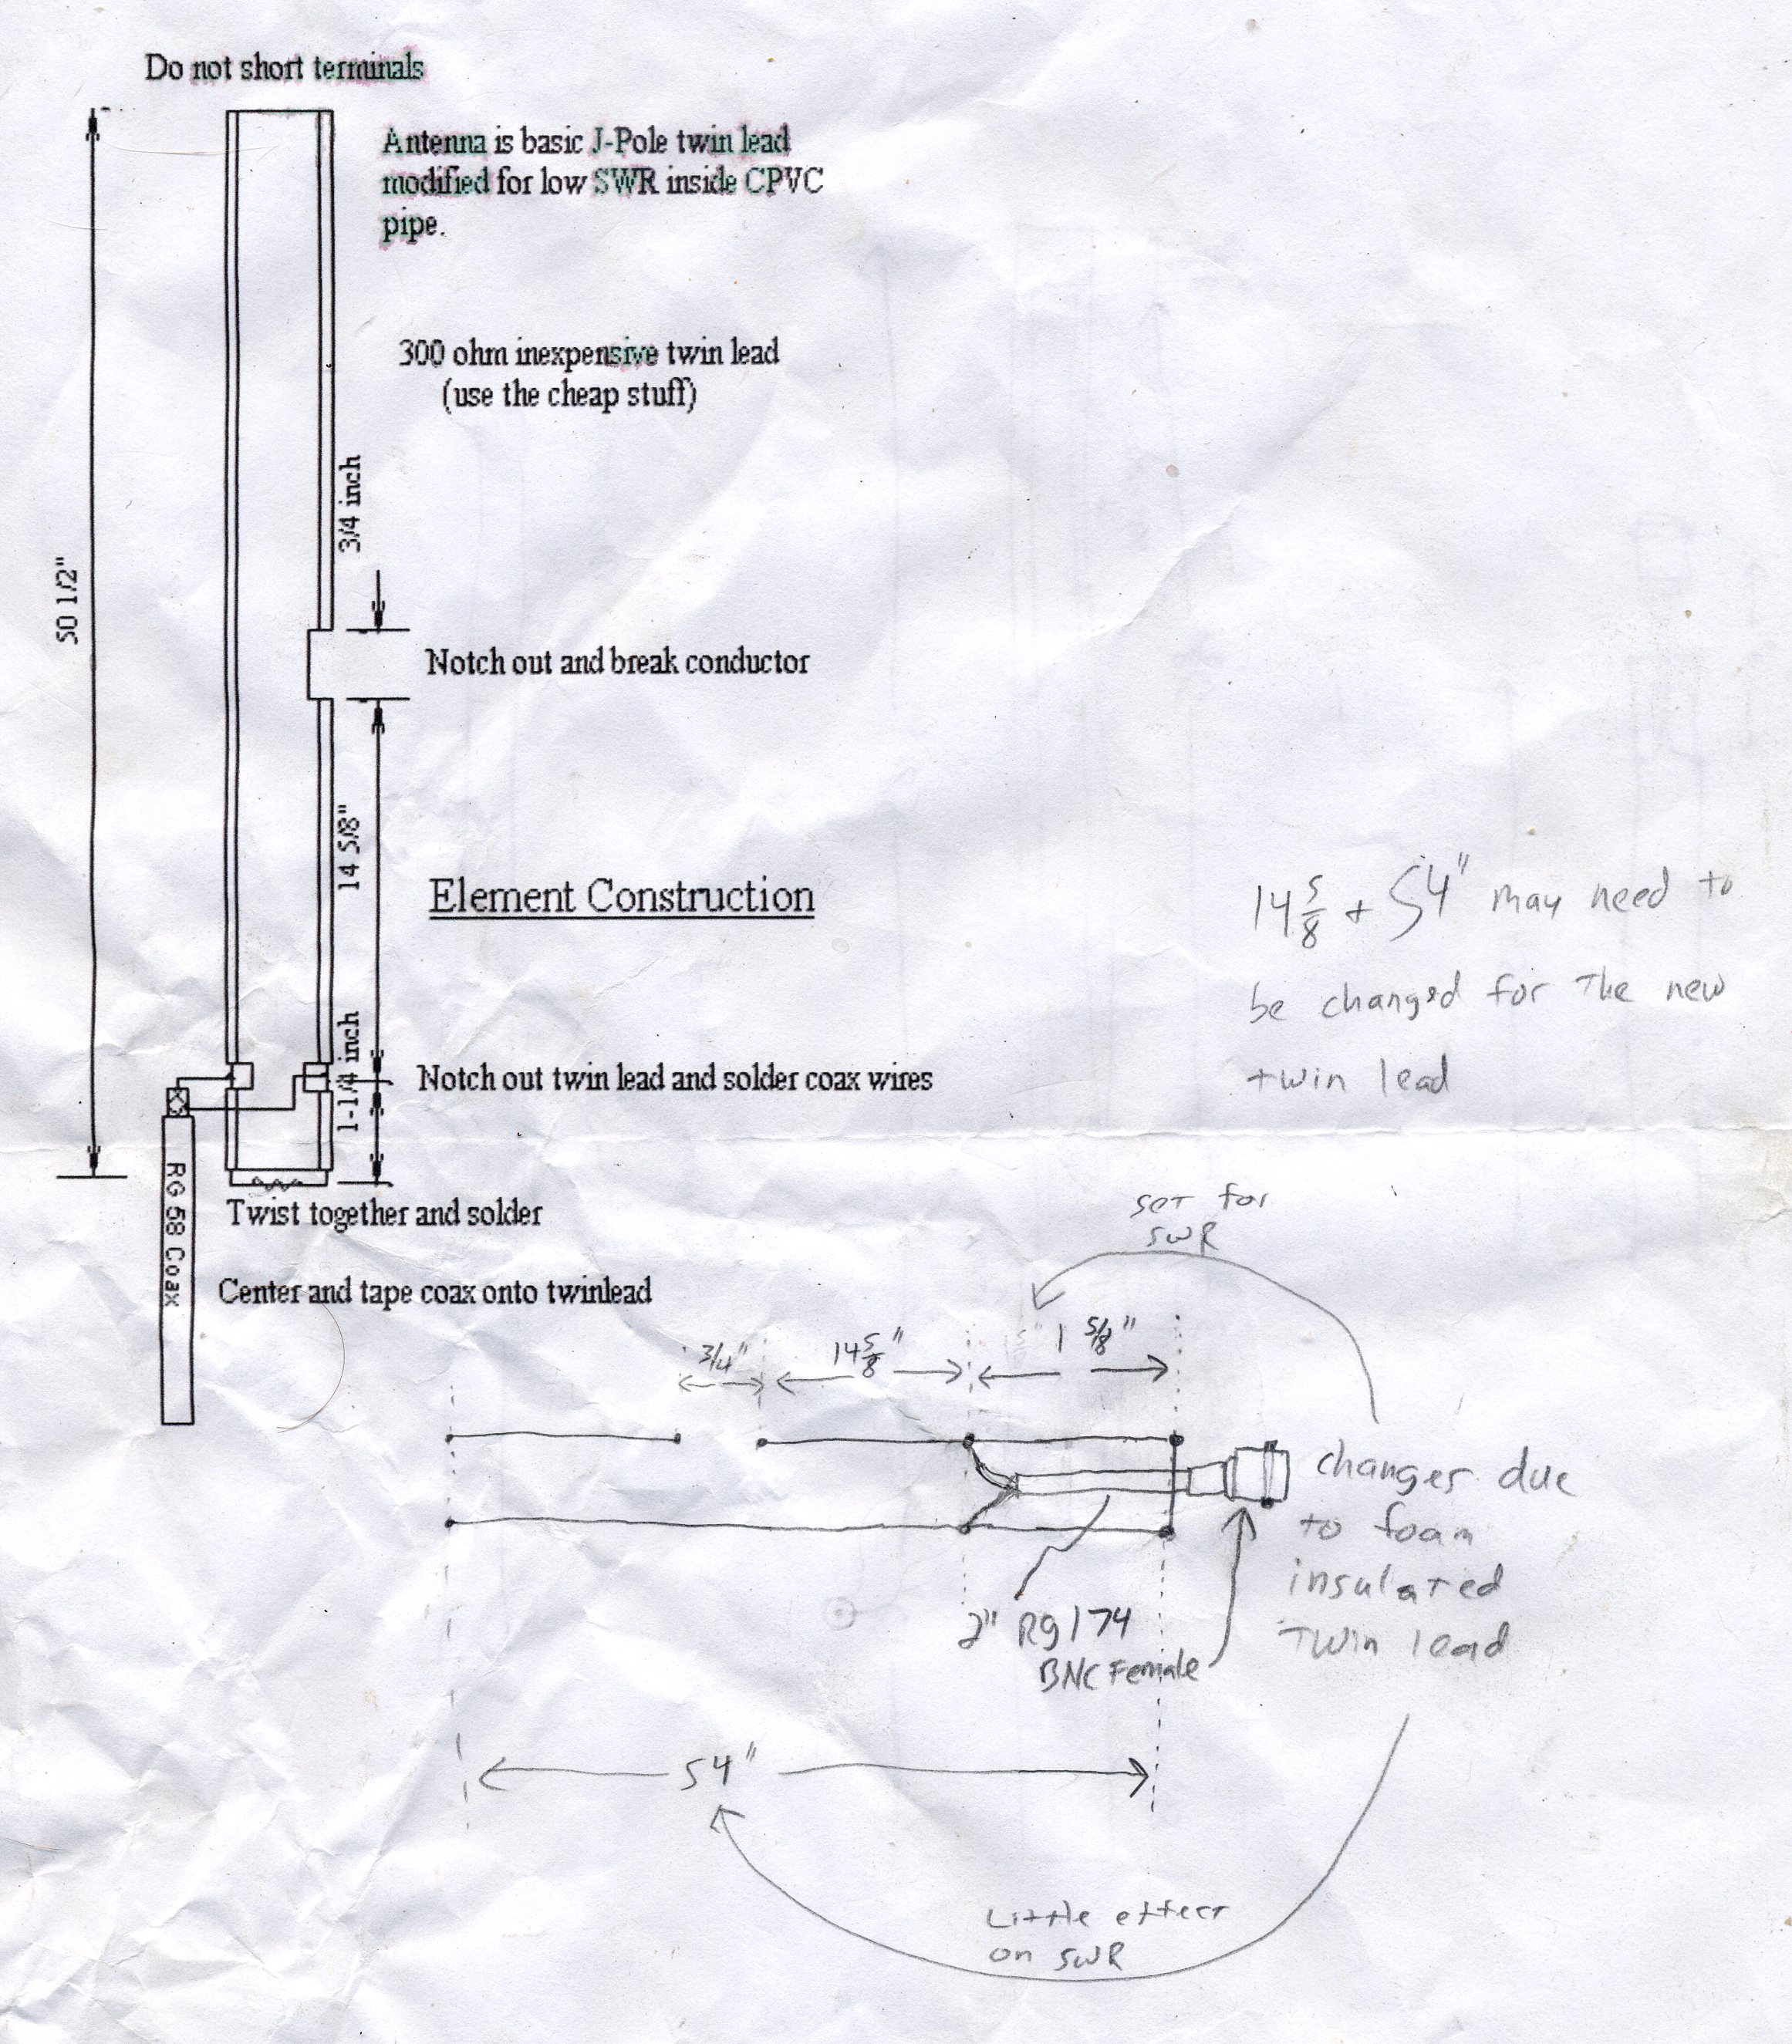 Do not short terminals
Antenna is basic J-Pole twin lead
modified for low SWR inside CPVC
pipe.
300 ohm inexpensive twin lead
(use the cheap stuff)
3/4 inch
50 1/2"
Notch out and break conductor
14 5/8"
Element Construction
14 5/8 + 54" may need to
be changed for the new
twin lead
1-1/4 inch
Notch out twin lead and solder coax wires
RG 58 Coax
Twist together and solder
Center and tape coax onto twinlead
set for
SWR
3/4"
14 5/8"
1 5/8"
changes due
to foam
insulated
twin lead
2" Rg174
BNC Female
54"
Little effect
on SWR